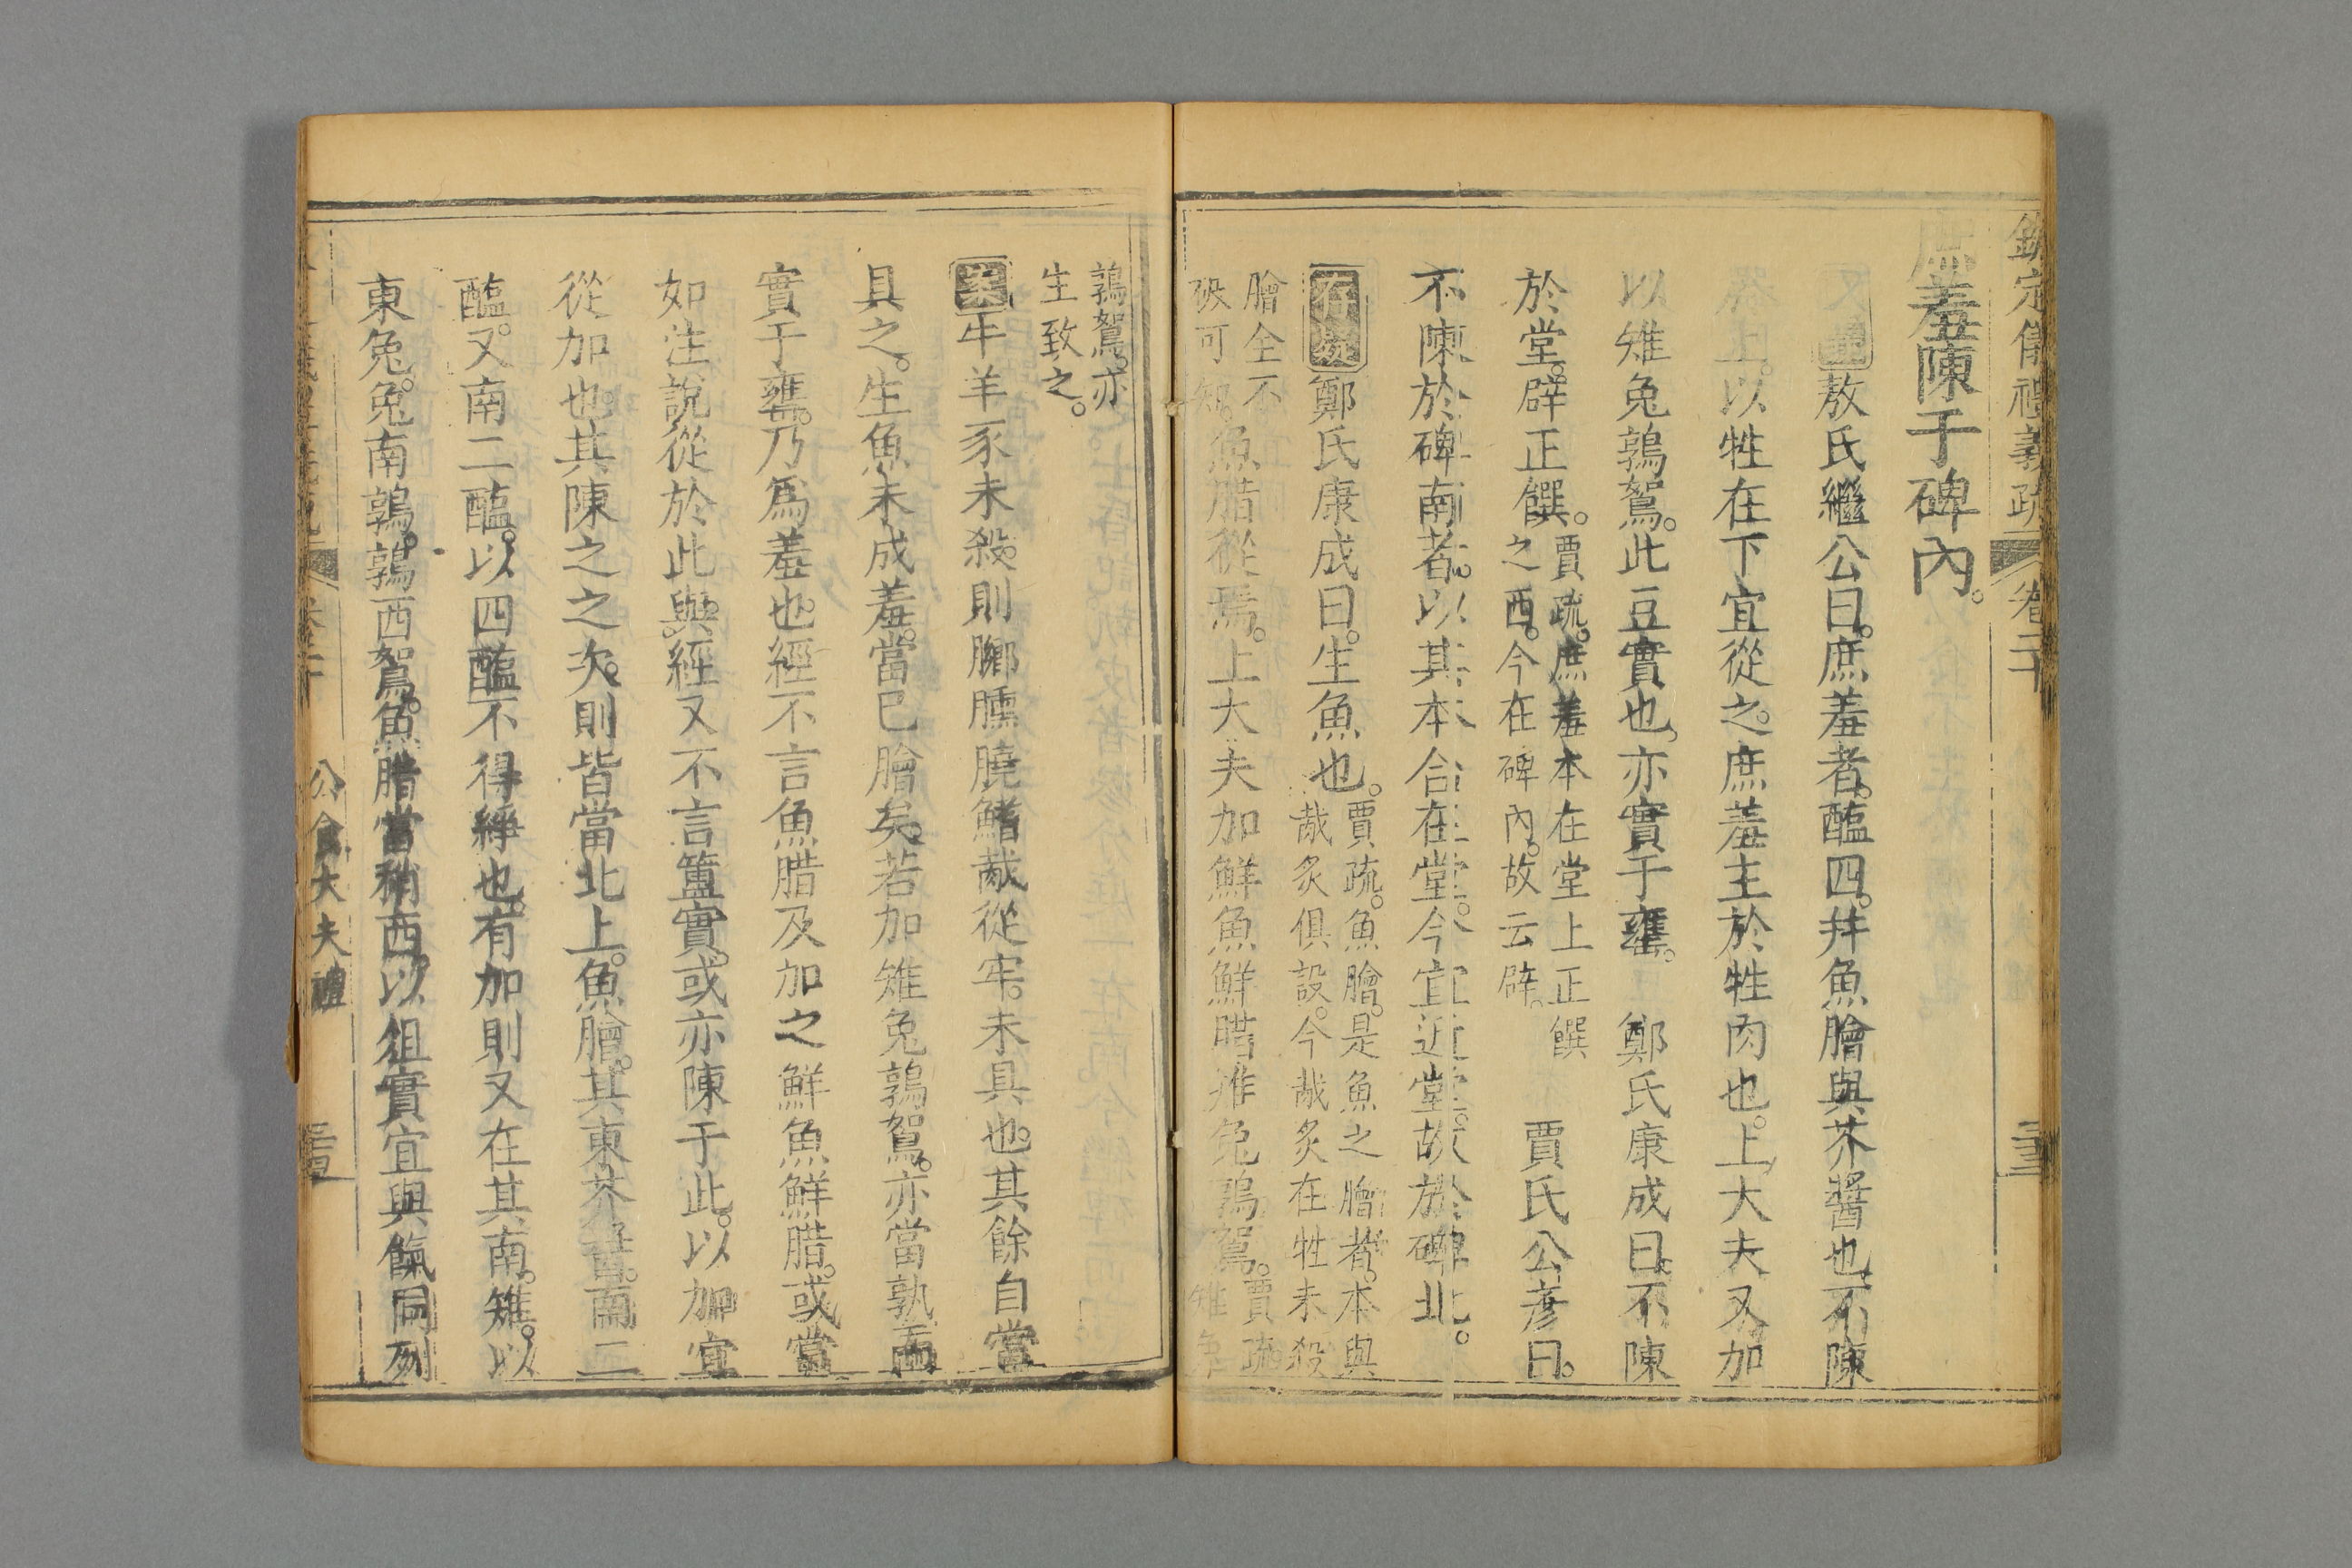 欽定儀禮義疏 卷二十 三十三
庶羞陳于碑內。
敖氏繼公曰。庶羞者。醢四。并魚膾與芥醬也。不陳
器上。以牲在下宜從之。庶羞主於牲肉也。上大夫又加
以雉兔鶉鴽。此豆實也。亦實于罋。 鄭氏康成曰。不陳
於堂。辟正饌。賈疏。庶羞本在堂上正饌
之西。今在碑內。故云辟。 賈氏公彥曰。
不陳於碑南者。以其本合在堂。今宜近堂。故於碑北。
存疑鄭氏康成曰。生魚也。賈疏。魚膾。是魚之膾者。本與
胾炙俱設。今胾炙在牲未殺
膾全不
破可知。魚腊從焉。上大夫加鮮魚鮮腊雉兔鶉鴽。賈疏
雉兔
鶉鴽。亦
生致之。
案牛羊豕未殺。則膷臐膮鮨胾從牢。未具也。其餘自當
具之。生魚未成羞。當已膾矣。若加雉兔鶉鴽。亦當孰而
實于罋。乃爲羞也。經不言魚腊及加之鮮魚鮮腊。或當
如注說從於此與。經又不言簠實。或亦陳于此。以加宜
從加也。其陳之之次。則皆當北上。魚膾。其東芥醬。南二
醢。又南二醢。以四醢不得綪也。有加則又在其南。雉。以
東兔。兔南鶉。鶉西鴽。魚腊當稍西。以俎實宜與餼同列
公食大夫禮